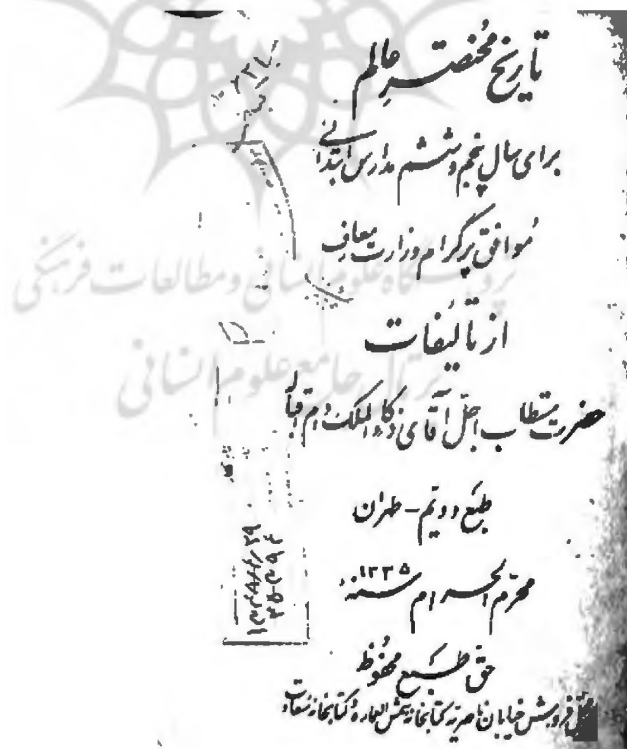 تاریخ مختصر عالم
برای سال پنجم و ششم مدارس ابتدائی
موافق پرگرام وزارت معارف
از تألیفات
حضرت مستطاب اجل آقای ذکاء الملک دام اقباله
طبع دویم - طهران
محرم الحرام سنه ۱۳۳۵
حق طبع محفوظ
محل فروش خیابان ناصریه کتابخانه شمس العماره و کتابخانه سعادت
پژوهشگاه علوم انسانی و مطالعات فرهنگی
پرتال جامع علوم انسانی